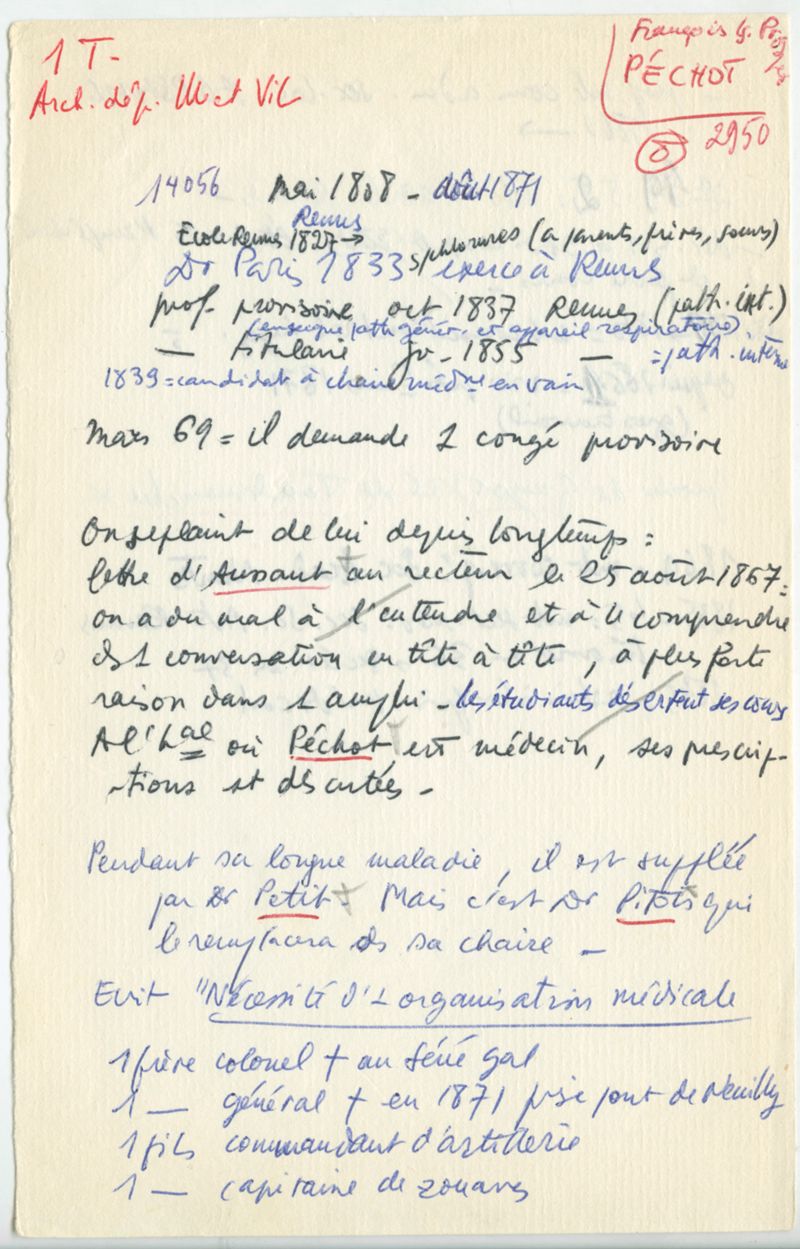 1 T-
Arch. dép. Ill et Vil
François
PÉCHOT
2950
14056 Mai 1808 - août 1871
Rennes
École Rennes 1827 → (a parents, frères, sœurs)
Dr Paris 1833 exerce à Rennes
prof. provisoire oct 1837 Rennes (path. ext.)
(enseigne path génér. et appareil respiratoire)
— titulaire 1855 — = path. interne
1839 = candidat à chaire méd. en vain
Mars 69 = il demande 1 congé provisoire
On se plaint de lui depuis longtemps :
lettre d'Aussant + au recteur le 25 août 1867 =
on a du mal à l'entendre et à le comprendre
ds 1 conversation en tête à tête, à plus forte
raison dans 1 amphi - les étudiants désertent ses cours
A l'Hal où Péchot est médecin, ses prescrip-
-tions st discutées -
Pendant sa longue maladie, il est suppléé
par Dr Petit + Mais c'est Dr Pitois qui
le remplacera ds sa chaire -
Ecrit "Nécessité d'1 organisation médicale
1 frère colonel + au Sénégal
1 — général + en 1871 prise pont de Neuilly
1 fils commandant d'artillerie
1 — capitaine de zouaves